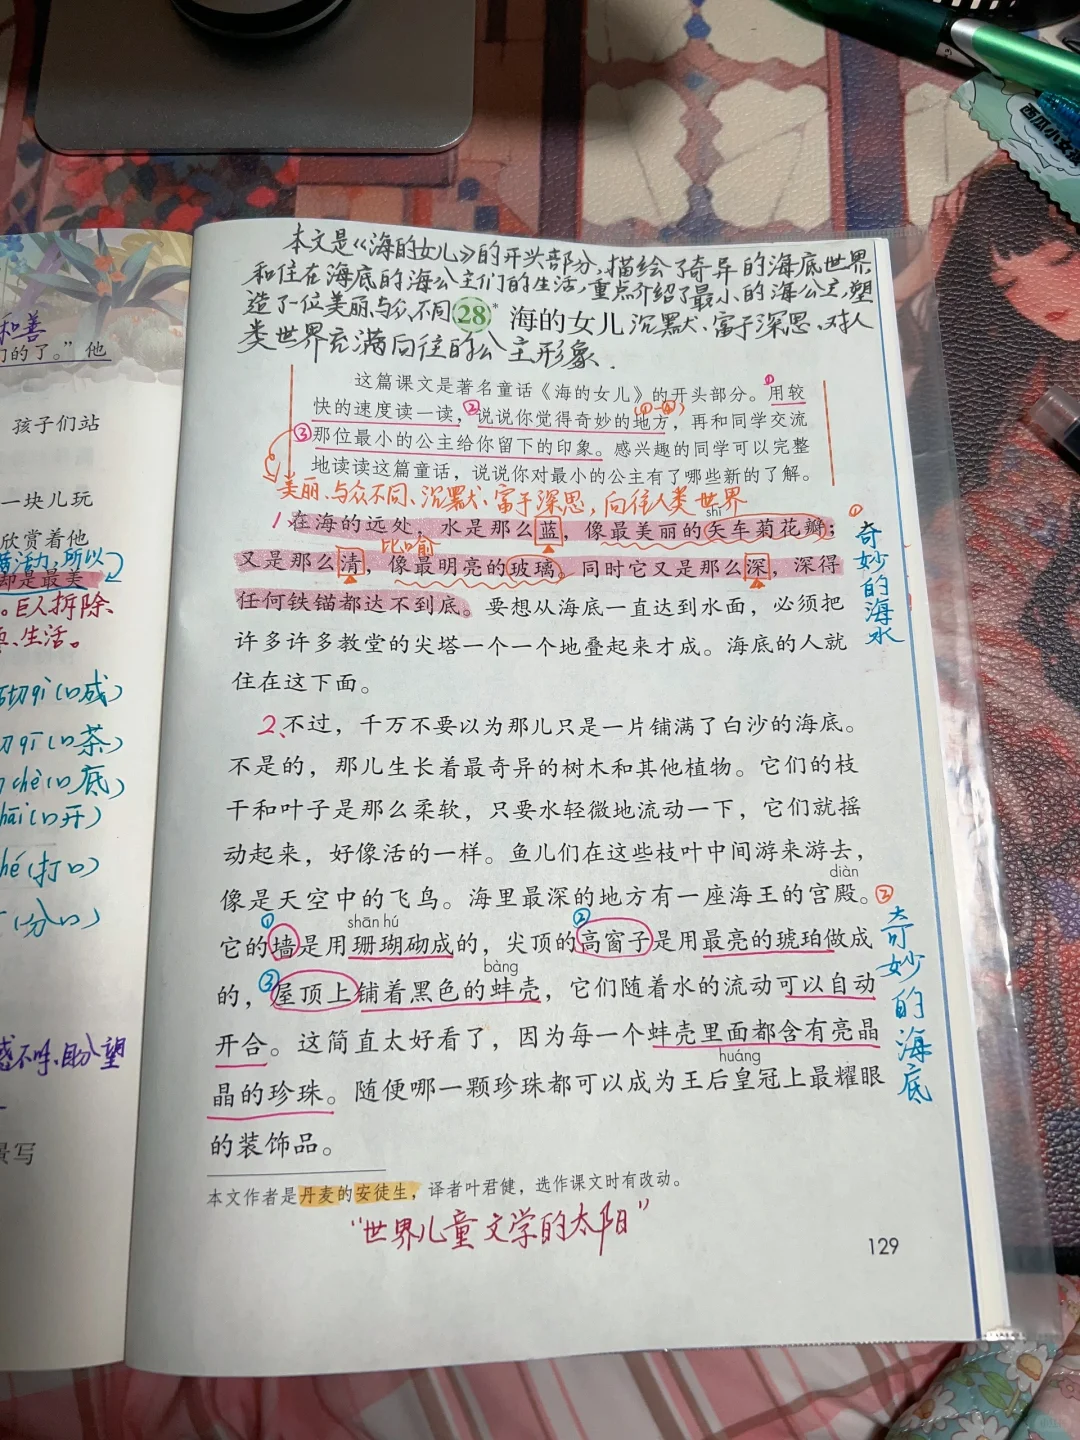 本文是《海的女儿》的开头部分,描绘了奇异的海底世界
和住在海底的海公主们的生活,重点介绍了最小的海公主,塑
造了一位美丽、与众不同
28* 海的女儿
沉默、富于深思、对人
类世界充满向往的公主形象.
这篇课文是著名童话《海的女儿》的开头部分。①用较
快的速度读一读,②说说你觉得奇妙的地方,再和同学交流
③那位最小的公主给你留下的印象。感兴趣的同学可以完整
地读读这篇童话,说说你对最小的公主有了哪些新的了解。
美丽、与众不同、沉默、富于深思,向往人类世界
shǐ
1 在海的远处,水是那么蓝,像最美丽的矢车菊花瓣;
比喻
又是那么清,像最明亮的玻璃。同时它又是那么深,深得
任何铁锚都达不到底。要想从海底一直达到水面,必须把
许多许多教堂的尖塔一个一个地叠起来才成。海底的人就
住在这下面。
① 奇妙的海水
2、不过,千万不要以为那儿只是一片铺满了白沙的海底。
不是的,那儿生长着最奇异的树木和其他植物。它们的枝
干和叶子是那么柔软,只要水轻微地流动一下,它们就摇
动起来,好像活的一样。鱼儿们在这些枝叶中间游来游去,
diàn
像是天空中的飞鸟。海里最深的地方有一座海王的宫殿。
shān hú
它的①墙是用珊瑚砌成的,尖顶的②高窗子是用最亮的琥珀做成
bàng
的,③屋顶上铺着黑色的蚌壳,它们随着水的流动可以自动
开合。这简直太好看了,因为每一个蚌壳里面都含有亮晶
huáng
晶的珍珠。随便哪一颗珍珠都可以成为王后皇冠上最耀眼
的装饰品。
② 奇妙的海底
本文作者是丹麦的安徒生,译者叶君健,选作课文时有改动。
“世界儿童文学的太阳”
129
和善
们的了。”他
孩子们站
一块儿玩
欣赏着他
活力,所以
却是最美
。巨人拆除
生活。
切qì(口成)
qī(口茶)
chè(口底)
(口开)
(打口)
(分口)
盼望
景写
西瓜小